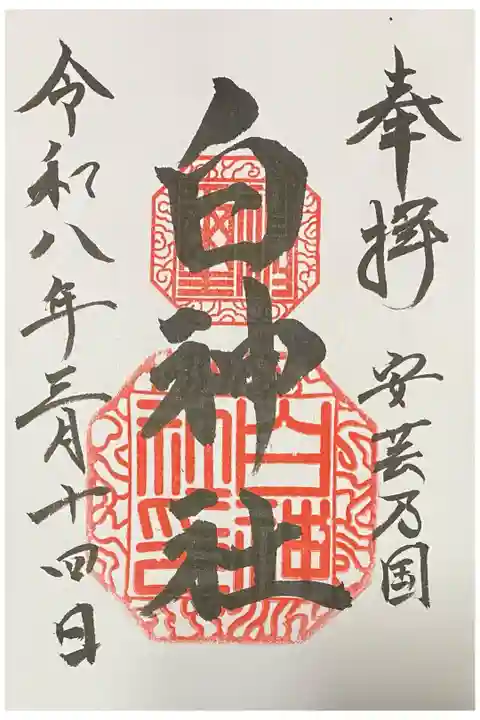 奉拝
安芸乃国
白神社
令和八年三月十四日